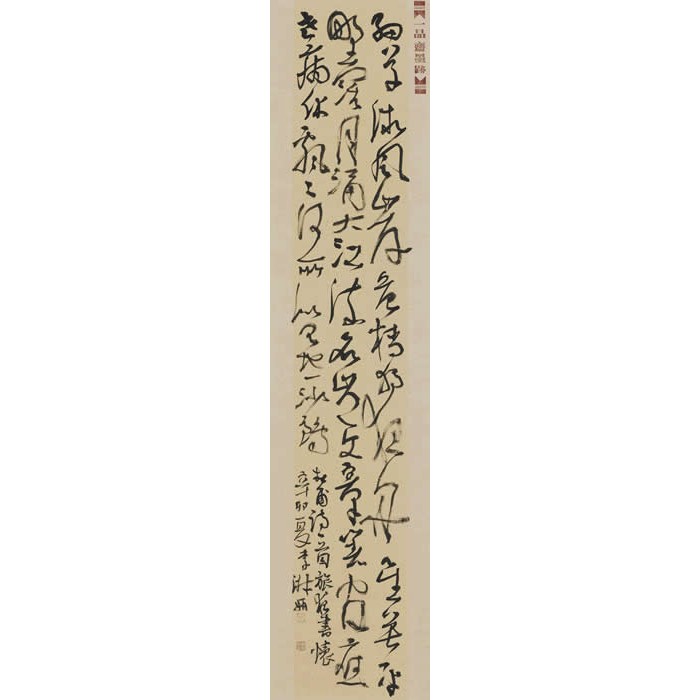 一品齋墨跡
細草微風岸危檣獨夜舟星垂平
野闊月湧大江流名豈文章著官應
老病休飄々何所似天地一沙鷗
杜甫詩一首旅夜書懷
辛卯夏李